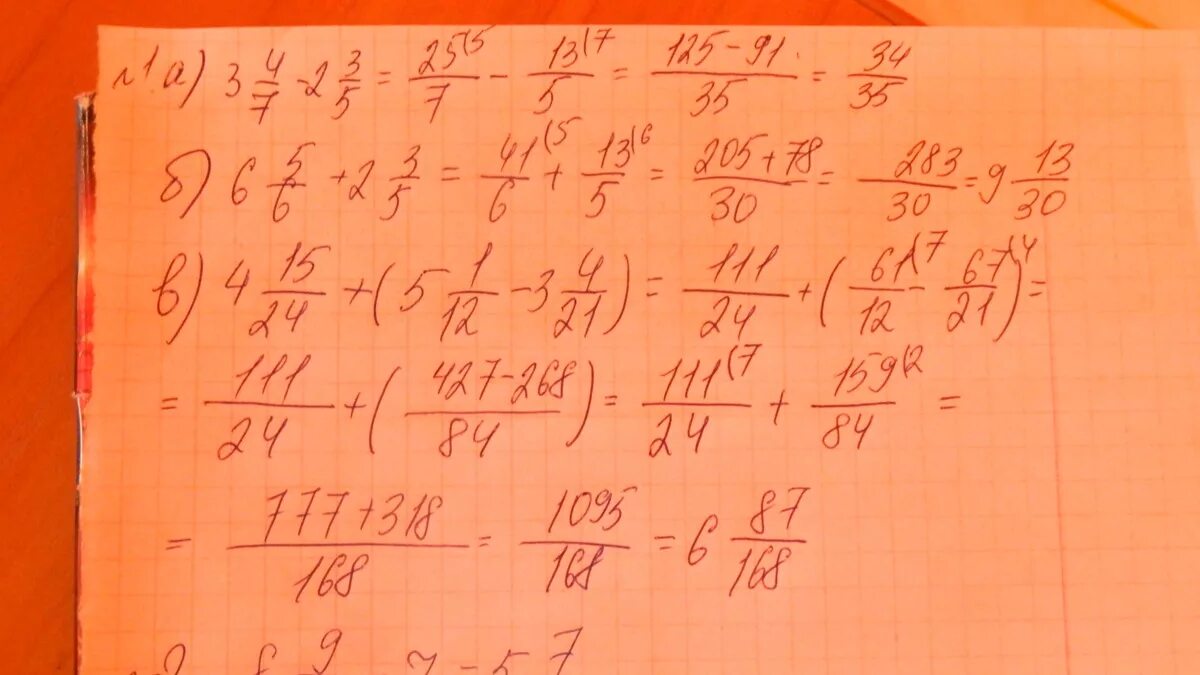 №1. а) 3 4/7 - 2 3/5 = 25(5/7 - 13(7/5 = 125-91/35 = 34/35
б) 6 5/6 + 2 3/5 = 41(5/6 + 13(6/5 = 205+78/30 = 283/30 = 9 13/30
в) 4 15/24 + (5 1/12 - 3 4/21) = 111/24 + (61(7/12 - 67(4/21) =
= 111/24 + (427-268/84) = 111(7/24 + 159(2/84 =
= 777+318/168 = 1095/168 = 6 87/168
9 7 - 5 7